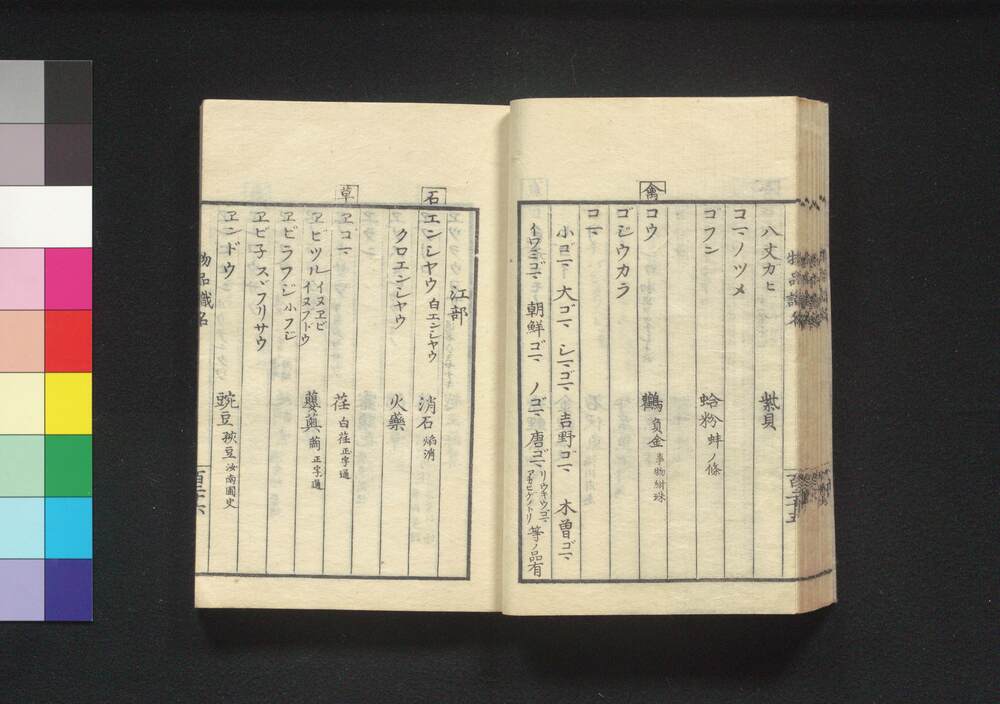 八丈カヒ 紫貝
コマノツメ
コフン 蛤粉 蚌ノ條
禽
コウ 鸛 負金 事物紺珠
ゴジウカラ
コマ
小ゴマ 大ゴマ シマゴマ 吉野ゴマ 木曽ゴマ
イワミゴマ 朝鮮ゴマ ノゴマ 唐ゴマ リウキウゴマ 等ノ品有
物品識名
江部
石
エンシヤウ 白エンシヤウ 消石 焔消
クロエンシヤウ 火藥
草
ヱゴマ 荏 白荏 正字通
ヱビツル イヌヱビ イヌブドウ 蘡薁 正字通
ヱビラフジ 小フジ
ヱビ子 スヾフリサウ
ヱンドウ 豌豆 豌豆 汝南圃史
物品識名
百二十六